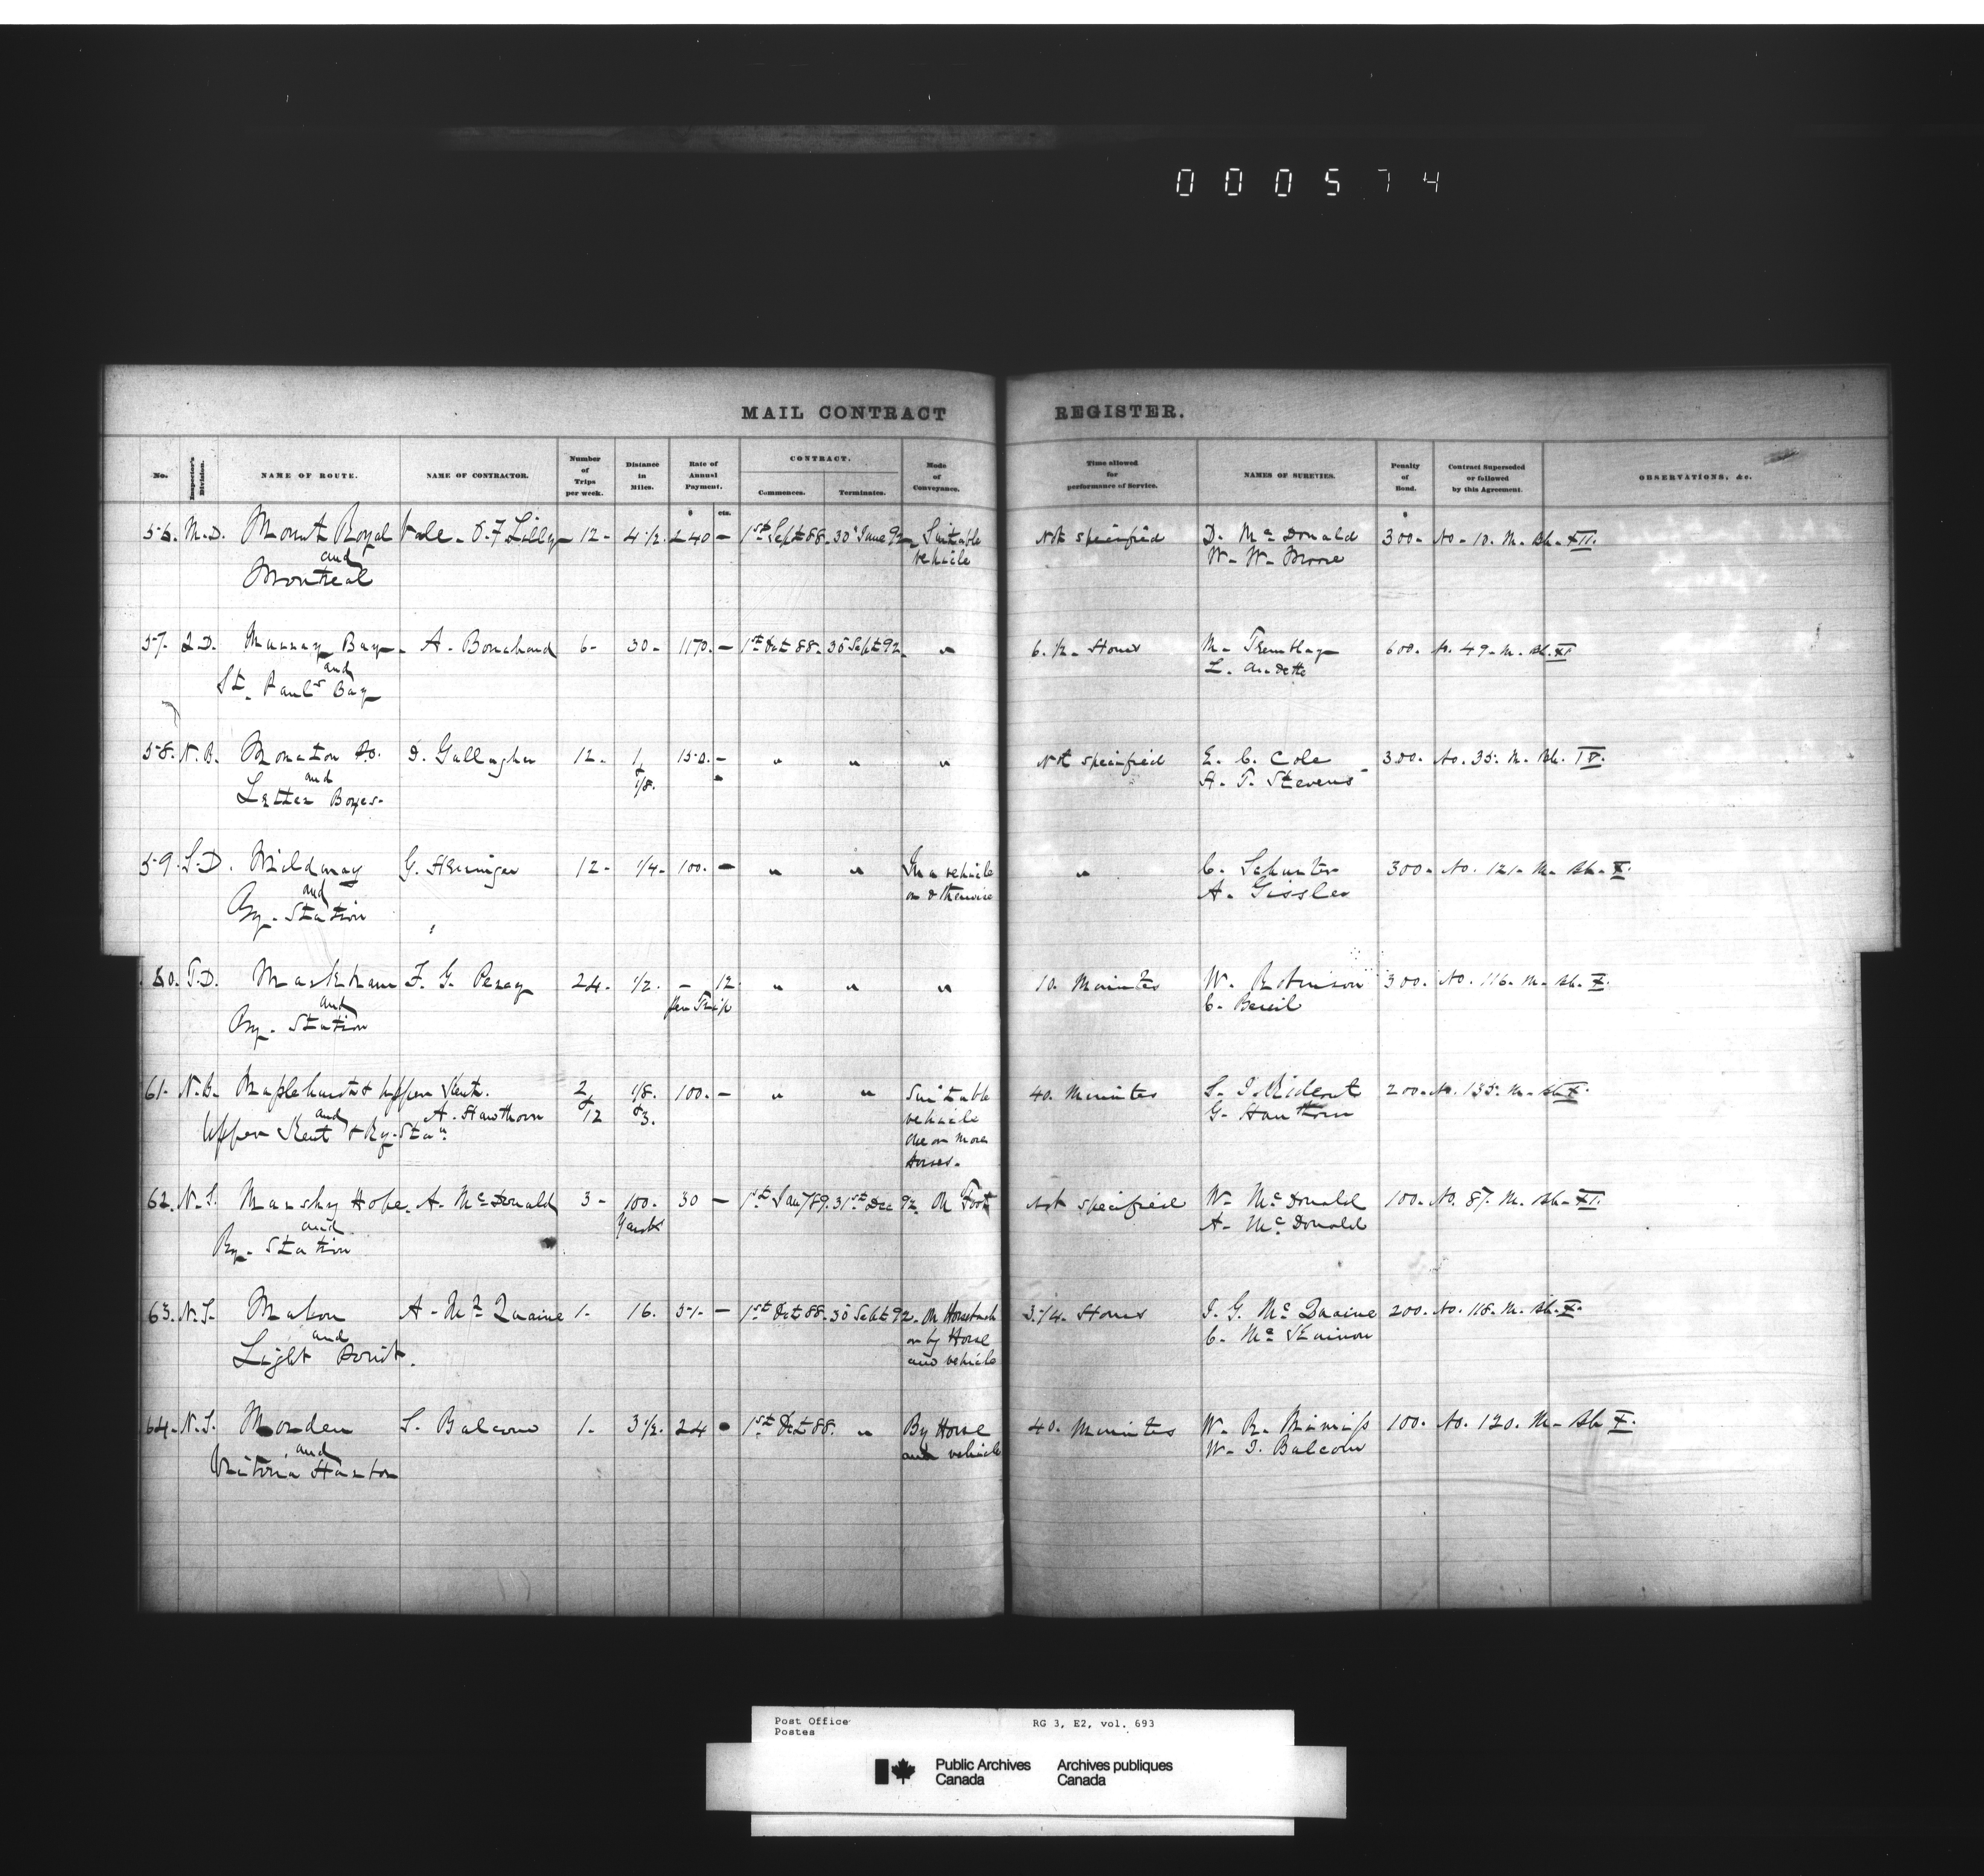 000574
MAIL CONTRACT REGISTER.
No. Inspector's Division. NAME OF ROUTE. NAME OF CONTRACTOR. Number of Trips per week. Distance in Miles. Rate of Annual Payment. CONTRACT. Commences. Terminates. Mode of Conveyance. Time allowed for performance of Service. NAMES OF SURETIES. Penalty of Bond. Contract Superseded or followed by this Agreement. OBSERVATIONS, &c.
$ cts.
56. M.D. Mount Royal Vale - O.F Lilly - 12 - 4 1/2. 240 - 1st Sept 88. 30 June 92 - Suitable Not specified D. Mc Donald 300 - No - 10. M. Bk - XII.
and vehicle W. W. Moore
Montreal
57. Q.D. Murray Bay - A. 6 - 30 - 1170. - 1st Oct 88. 30 Sept 92. " 6. 1/2 - Hours M. Tremblay 600. No. 49. M. Bk. XI
and L. Audette
St. Paul's Bay
58. N.B. Moncton P.O. D. Gallagher 12. 1 150. - " " " Not specified E. C. Cole 300. No. 35. M. Bk. IX.
and & 1/8. A. T. Stevens
Letter Boxes.
59. L.D. Mildmay G. Herringer 12 - 1/4 - 100. - " " In a vehicle " C. Schunter 300. No. 121. M. Bk. X.
and or otherwise A. Gissler
Ry. Station
60. T.D. Markham F. G. Percy 24. 1/2. - 12 " " " 10. Minutes W. Robinson 300. No. 116. M. Bk. X.
and per Trip C.
Ry. Station
61. N.B. Maplehurst & Upper Kent. 2 1/8. 100. - " " Suitable 40. Minutes S. J. Rideout 200. No. 135. M. Bk X.
and A. Hawthorn & 12 & 3. vehicle G. Hawthorn
Upper Kent & Ry. Stan. one or more
horses.
62. N.S. Marshy Hope. A. McDonald 3 - 100. 30 - 1st Jan'y 89. 31st Dec 92. On Foot Not specified W. McDonald 100. No. 87. M. Bk - XI.
and Yards A. McDonald
Ry. Station
63. N.S. Mabou A. Mc Quaine 1. 16. 51. - 1st Oct 88. 30 Sept 92. On Horseback 3 1/4. Hours J. G. Mc Quaine 200. No. 118. M. Bk. X.
and or by Horse C. Mc Kinnon
Light Point. and vehicle
64. N.S. Morden S. Balcom 1. 3 1/2. 24 1st Oct 88. " By Horse 40. Minutes W. R. 100. No. 120. M. Bk X.
and and vehicle W. J. Balcom
Victoria Harbor
Post Office RG 3, E2, vol. 693
Postes
Public Archives Archives publiques
Canada Canada